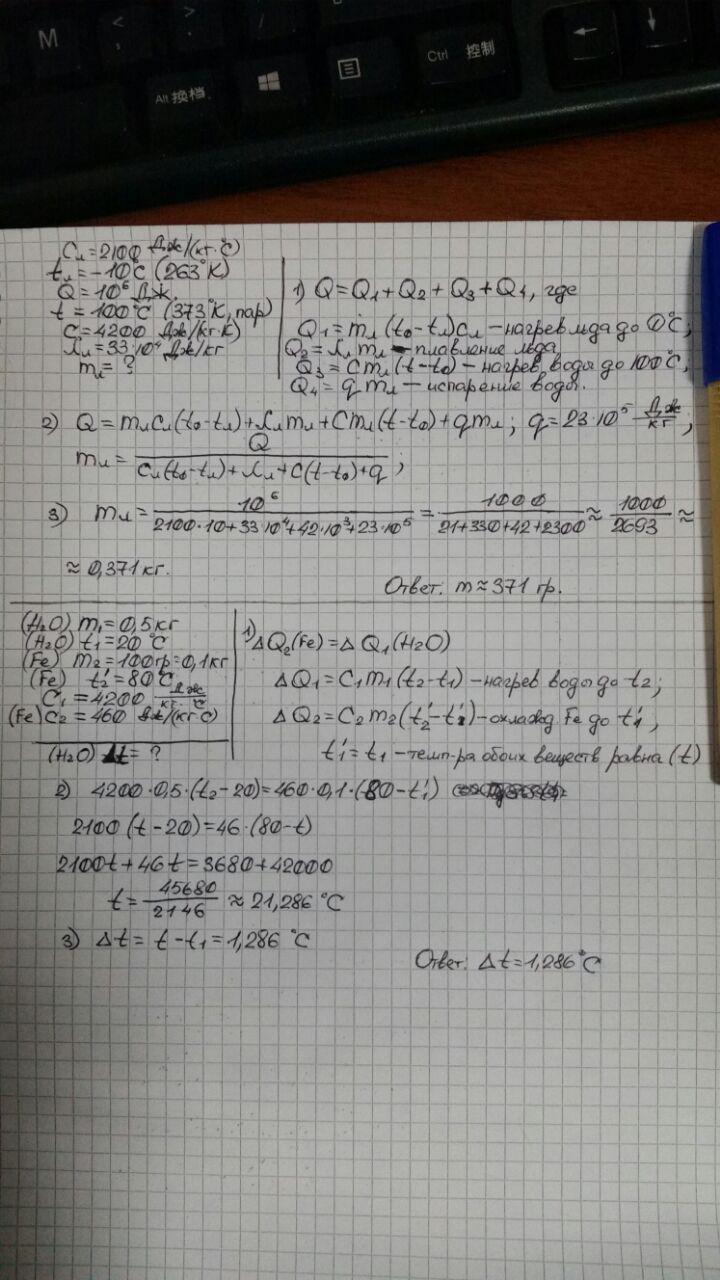 M
<
,
>
.
?
/
Alt 换档
Ctrl 控制
←
↓
Cл = 2100 Дж/(кг·°C)
tл = -10°C (263°K)
Q = 10⁶ Дж.
t = 100°C (373°K, пар)
C = 4200 Дж/(кг·К)
λл = 33·10⁴ Дж/кг
mл = ?
1) Q = Q₁ + Q₂ + Q₃ + Q₄, где
Q₁ = mл (t₀ - tл) cл — нагрев льда до 0°C;
Q₂ = λл mл — плавление льда
Q₃ = Cmл (t - t₀) — нагрев воды до 100°C;
Q₄ = q mл — испарение воды.
2) Q = mл cл (t₀ - tл) + λл mл + Cmл (t - t₀) + q mл; q = 23·10⁵ Дж/кг;
mл = Q / (cл(t₀ - tл) + λл + C(t - t₀) + q);
3) mл = 10⁶ / (2100·10 + 33·10⁴ + 42·10³ + 23·10⁵) = 1000 / (21 + 330 + 42 + 2300) ≈ 1000 / 2693 ≈
≈ 0,371 кг.
Ответ: m ≈ 371 гр.
(H₂O) m₁ = 0,5 кг
(H₂O) t₁ = 20 °C
(Fe) m₂ = 100 гр = 0,1 кг
(Fe) t₂' = 80°C
C₁ = 4200 Дж/кг·°C
(Fe) C₂ = 460 Дж/(кг·C)
(H₂O) Δt = ?
1) ΔQ₂(Fe) = ΔQ₁(H₂O)
ΔQ₁ = C₁m₁(t₂ - t₁) — нагрев воды до t₂;
ΔQ₂ = C₂m₂(t₂' - t₁') — охлажд. Fe до t₁',
t₁' = t₁ — темп-ра обоих веществ равна (t)
2) 4200·0,5·(t₂ - 20) = 460·0,1·(80 - t₁')
2100 (t - 20) = 46·(80 - t)
2100t + 46t = 3680 + 42000
t = 45680 / 2146 ≈ 21,286 °C
3) Δt = t - t₁ = 1,286 °C
Ответ: Δt = 1,286°C